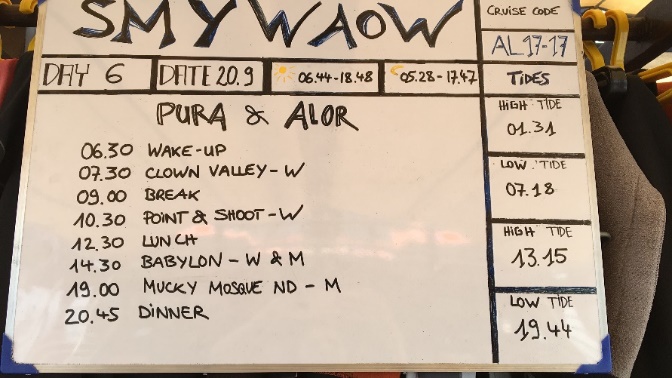 SMY WAOW
CRUISE CODE
AL 17-17
DAY 6 DATE 20.9 06.44-18.48 05.28-17.47
TIDES
PURA & ALOR
06.30 WAKE-UP
07.30 CLOWN VALLEY - W
09.00 BREAK
10.30 POINT & SHOOT - W
12.30 LUNCH
14.30 BABYLON - W & M
19.00 MUCKY MOSQUE ND - M
20.45 DINNER
HIGH TIDE
01.31
LOW TIDE
07.18
HIGH TIDE
13.15
LOW TIDE
19.44